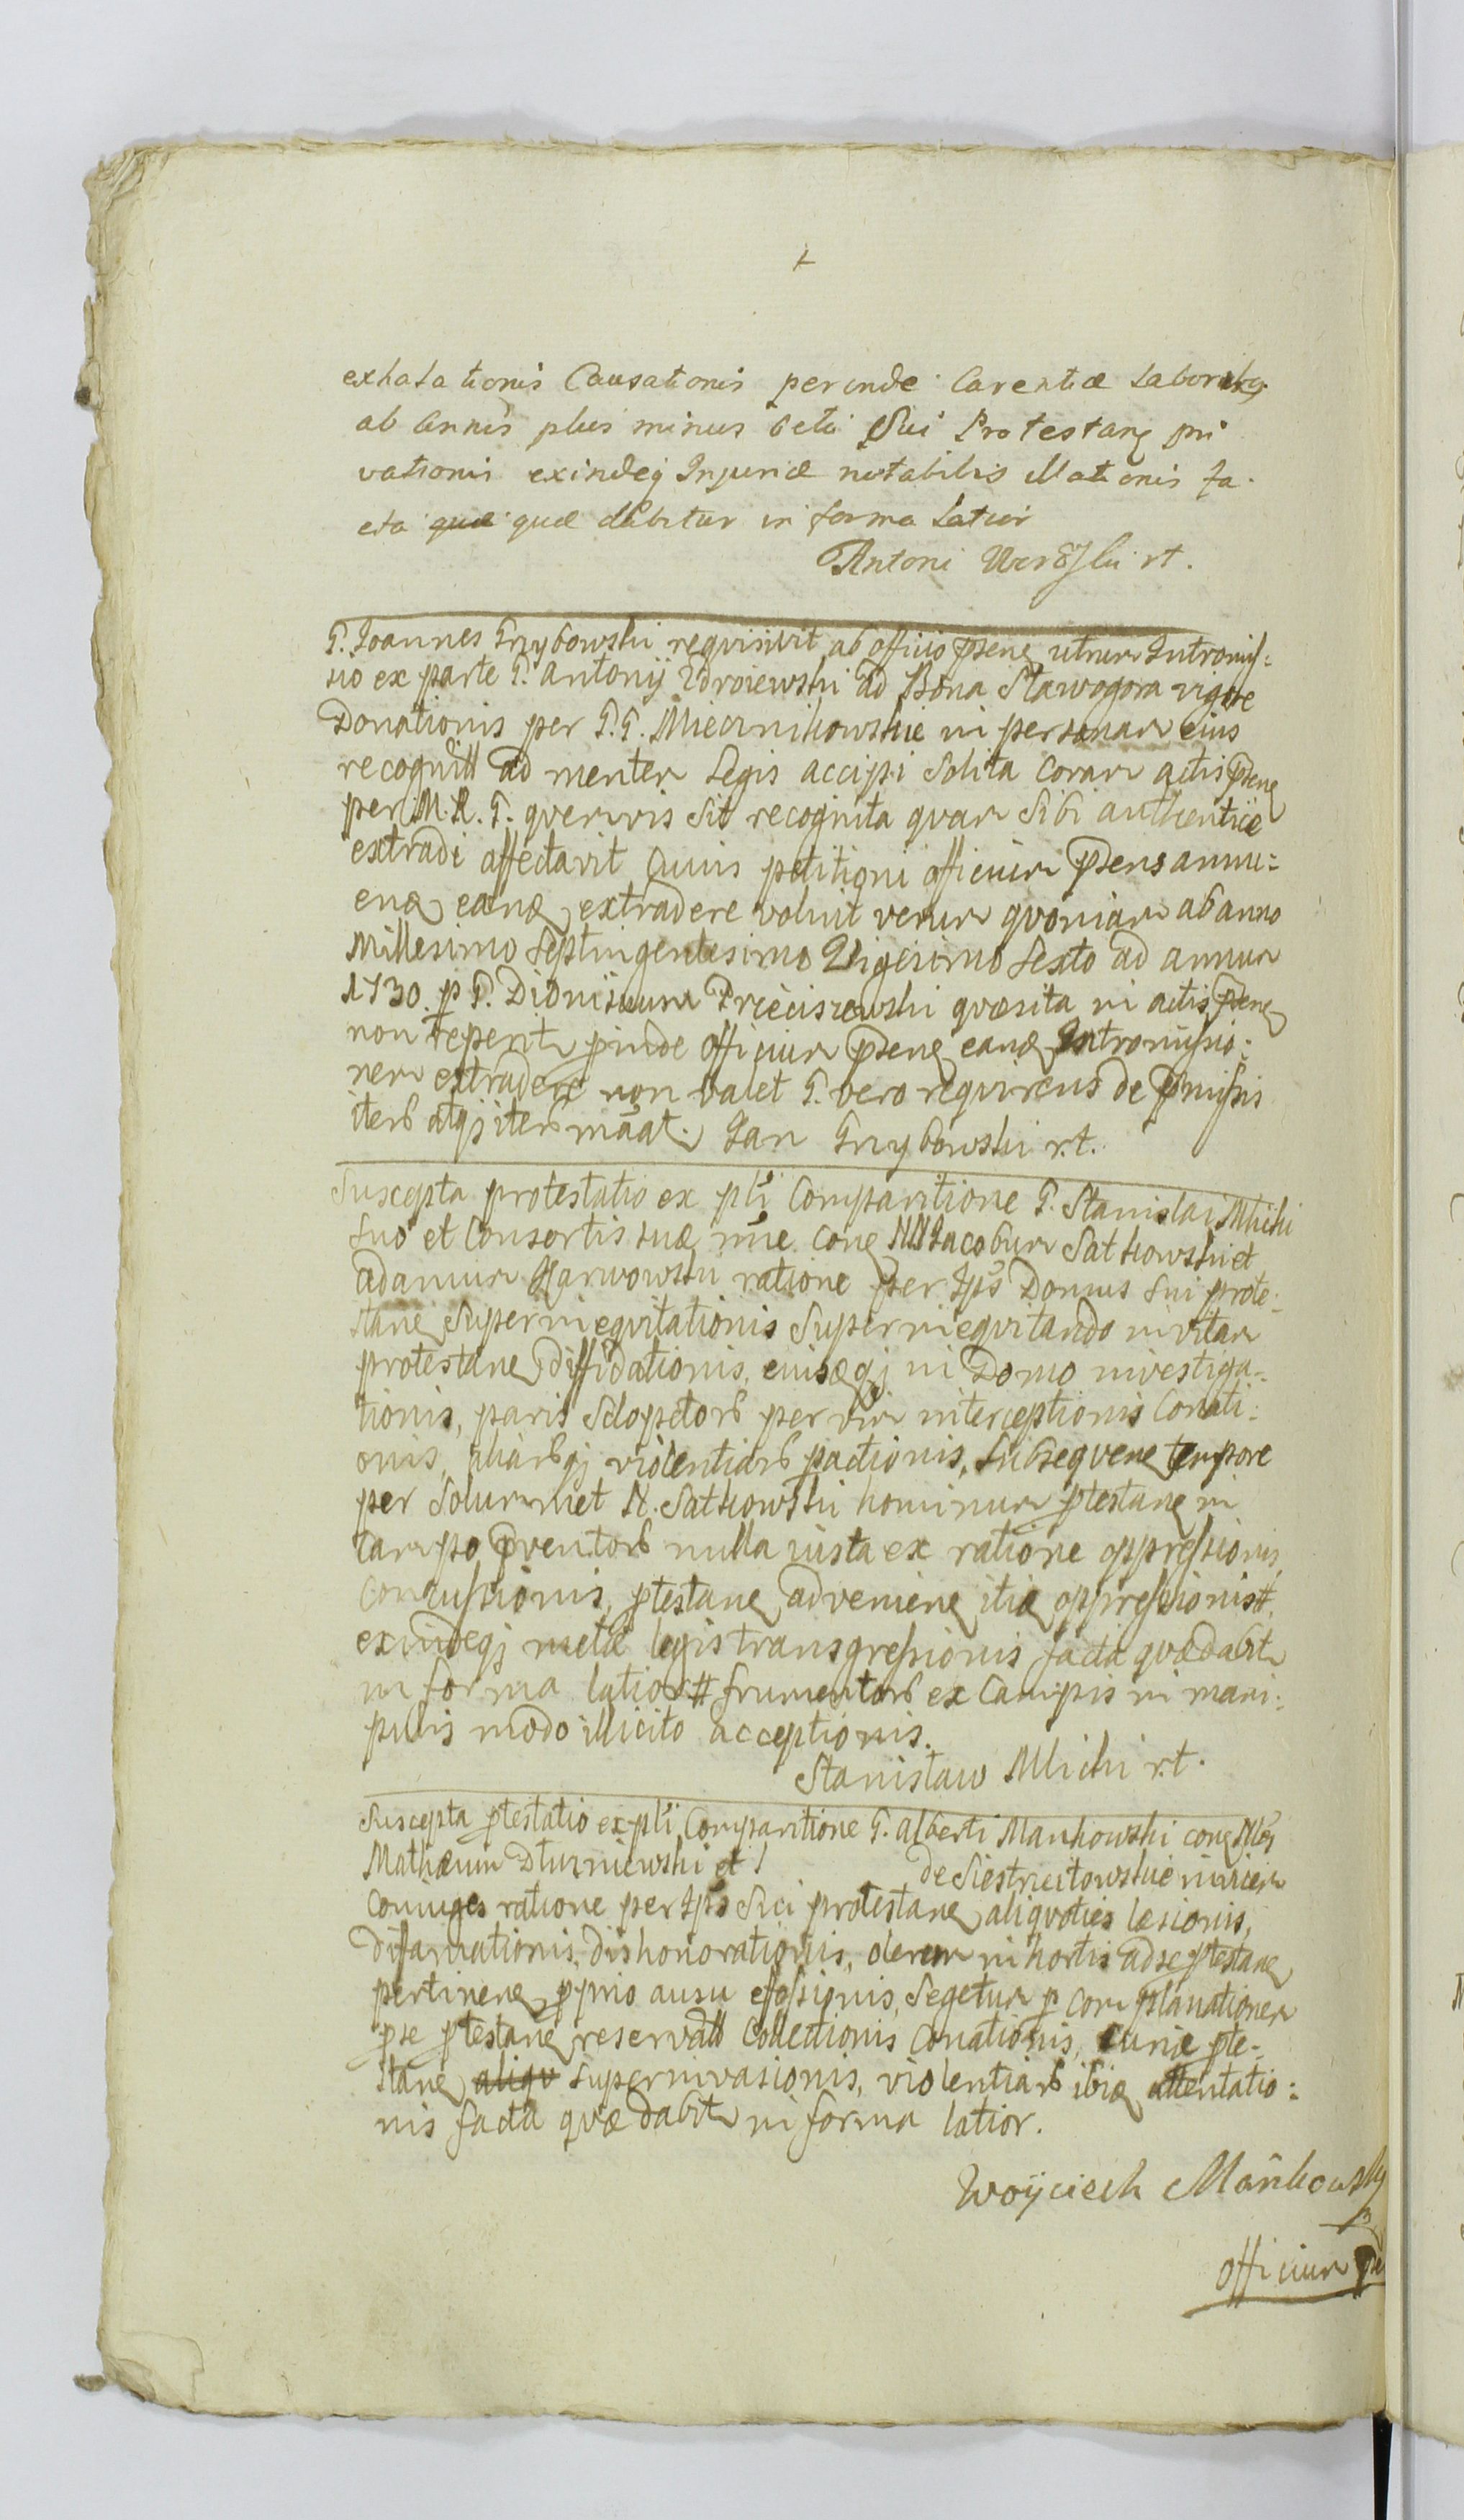 exhalationis Causationis perinde Carentiæ Laboribq
ab Annis plus minus Sui Protestanę pri
vationis exindeq Injuriæ notabilis illationis fa
cta quæ quæ dabitur in forma Latior
Antoni rt.
G. Joannes Grzybowski requisivit ab officio pſenę utrum Intromiſ=
sio ex parte G. Antonij Zdroiewski ad Bona Stawogora vigore
Donationis per G.G. Miecznikowskie in personam eius
recognitæ ad mentem Legis accipi Solita coram actis pſenę
per M.R.G. quemvis sit recognita quam sibi authentice
extradi affectavit Cuius petitioni officium pſens annu=
enę eanę extradere voluit verum quoniam ab anno
Millesimo Septingentesimo Vigesimo Sexto ad annum
1730. p G. Dionisium Przeciszewski quæsita in actis pſenę
non reperit pinde officium pſenę eanę Intromiſsio=
nem extradere non valet G. vero requirens de pmiſsis
iterb atqj iterb māāt. Jan Grzybowski r.t.
Suscepta protestatio ex pti Comparitione G. Stanislai Mlicki
suo et Consortis suæ nne conę NN Jacobum Satkowski et
Adamum Karwowski ratione per Ips Domus sui prote=
stanę superinequitationis Superinequitando in vitam
protestanę diffidationis, eiusqj in Domo investiga=
tionis, paris Sclopetorb per vim interceptionis Conati=
onis, aliarbqj violentiarb pactionis, Subsequenę tempore
per Solummet N. Satkowski hominum ptestanę in
campo pventorb nulla iusta ex ratione oppreſsionis,
Concuſsionis, ptestanę advenienę itię oppreſsionis #,
exindeqj metæ legis transgreſsionis facta quæ dabit
in forma latior # frumentorb ex Campis in mani=
pulis modo illicito acceptionis.
Stanisław Mlicki r.t.
Suscepta ptestatio ex pti Comparitione G. Alberti Mankowski conę NNos
Mathæum Dłuzniewski et de Siestrzcitowskie invicem
Coniuges ratione per Ips Sui protestanę aliquoties læsionis,
difamationis, dishonorationis, olerum in hortis ad se ptestanę
pertinenę pprio ausu efoſsionis, Segetum p Complanationem
pse ptestanę reservatb Collectionis Conationis, Curiæ pte=
stanę aliqu superinvasionis, violentiarb ibię attentatio=
nis facta quæ dabit in forma latior.
Woyciech Mańkowsky
officium